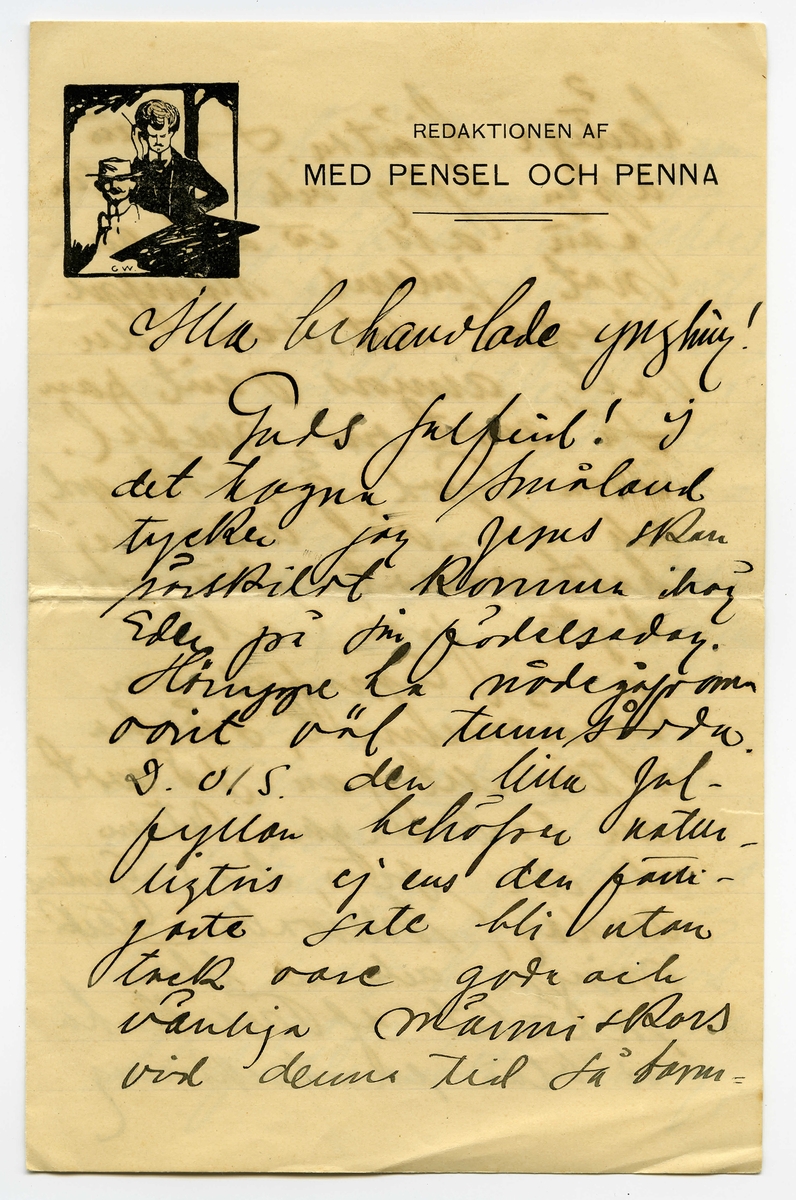 REDAKTIONEN AF
MED PENSEL OCH PENNA
GW
Illa behandlade yngling!
Guds julfrid! I
det hagna Småland
tycker jag Jesus skan
särskildt komma ihåg
Eder på sin födelsedag.
ha
varit väl tunnsådda.
D. v. s. den lilla jul-
fyllan behöfver natur-
ligtvis ej ens den fatti-
gaste sate bli utan
tack vare goda och
vänliga människors
vid denna tid så barm=